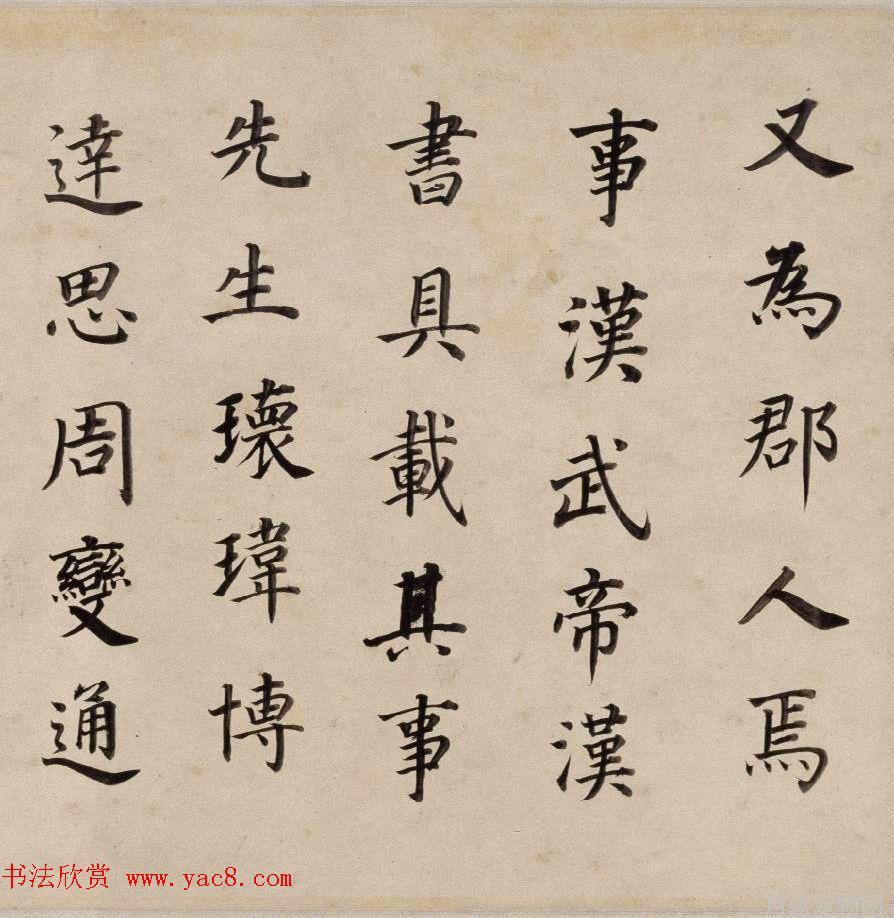 又為郡人焉
事漢武帝漢
書具載其事
先生瓌瑋博
達思周變通
书法欣赏 www.yac8.com